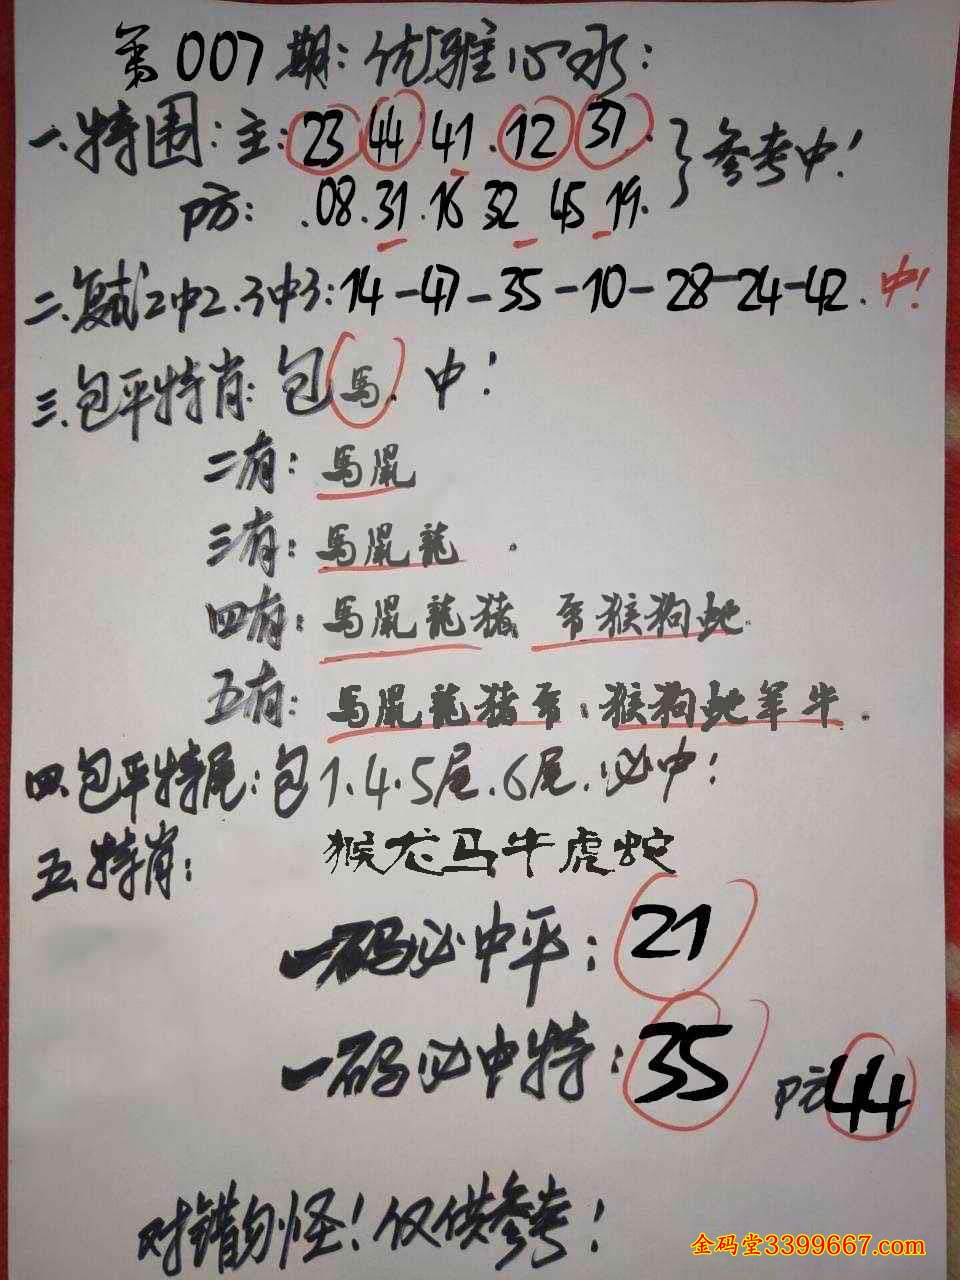 第007期:优雅心水:
一.特围:主:23 44 41.12 37.
防:.08.31.16 32 45 19.
参考中!
二.复式2中2.3中3:14-47-35-10-28-24-42.中!
三.包平特肖:包马.中!
二有:馬鼠
三有:馬鼠龍.
四有:馬鼠龍猪 兔猴狗蛇.
五有:馬鼠龍猪兔:猴狗蛇羊牛.
四.包平特尾:包1.4.5尾.6尾.必中!
五.特肖:猴龙马牛虎蛇
一码必中平:21
一码必中特:35 防44
对错勿怪!仅供参考!
金码堂3399667.com